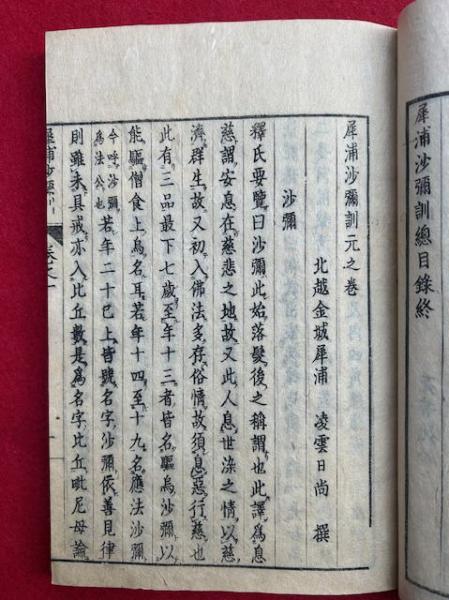 犀浦沙彌訓總目錄終
犀浦沙彌訓元之卷
北越金城犀浦 凌雲日尚 撰
沙彌
釋氏要覽曰沙彌此始落髮後之稱謂也此譯爲息
慈謂安息在慈悲之地故又此人息世染之情以慈
濟群生故又初入佛法多存俗情故須息惡行慈也
此有三品最下七歲至年十三者皆名驅烏沙彌以
能驅僧食上烏名耳若年十四至十九名應法沙彌
今呼沙彌爲法公也若年二十已上皆號名字沙彌依善見律
則雖未具戒亦入比丘數是爲名字比丘毗尼母論
犀浦沙彌訓
卷之一